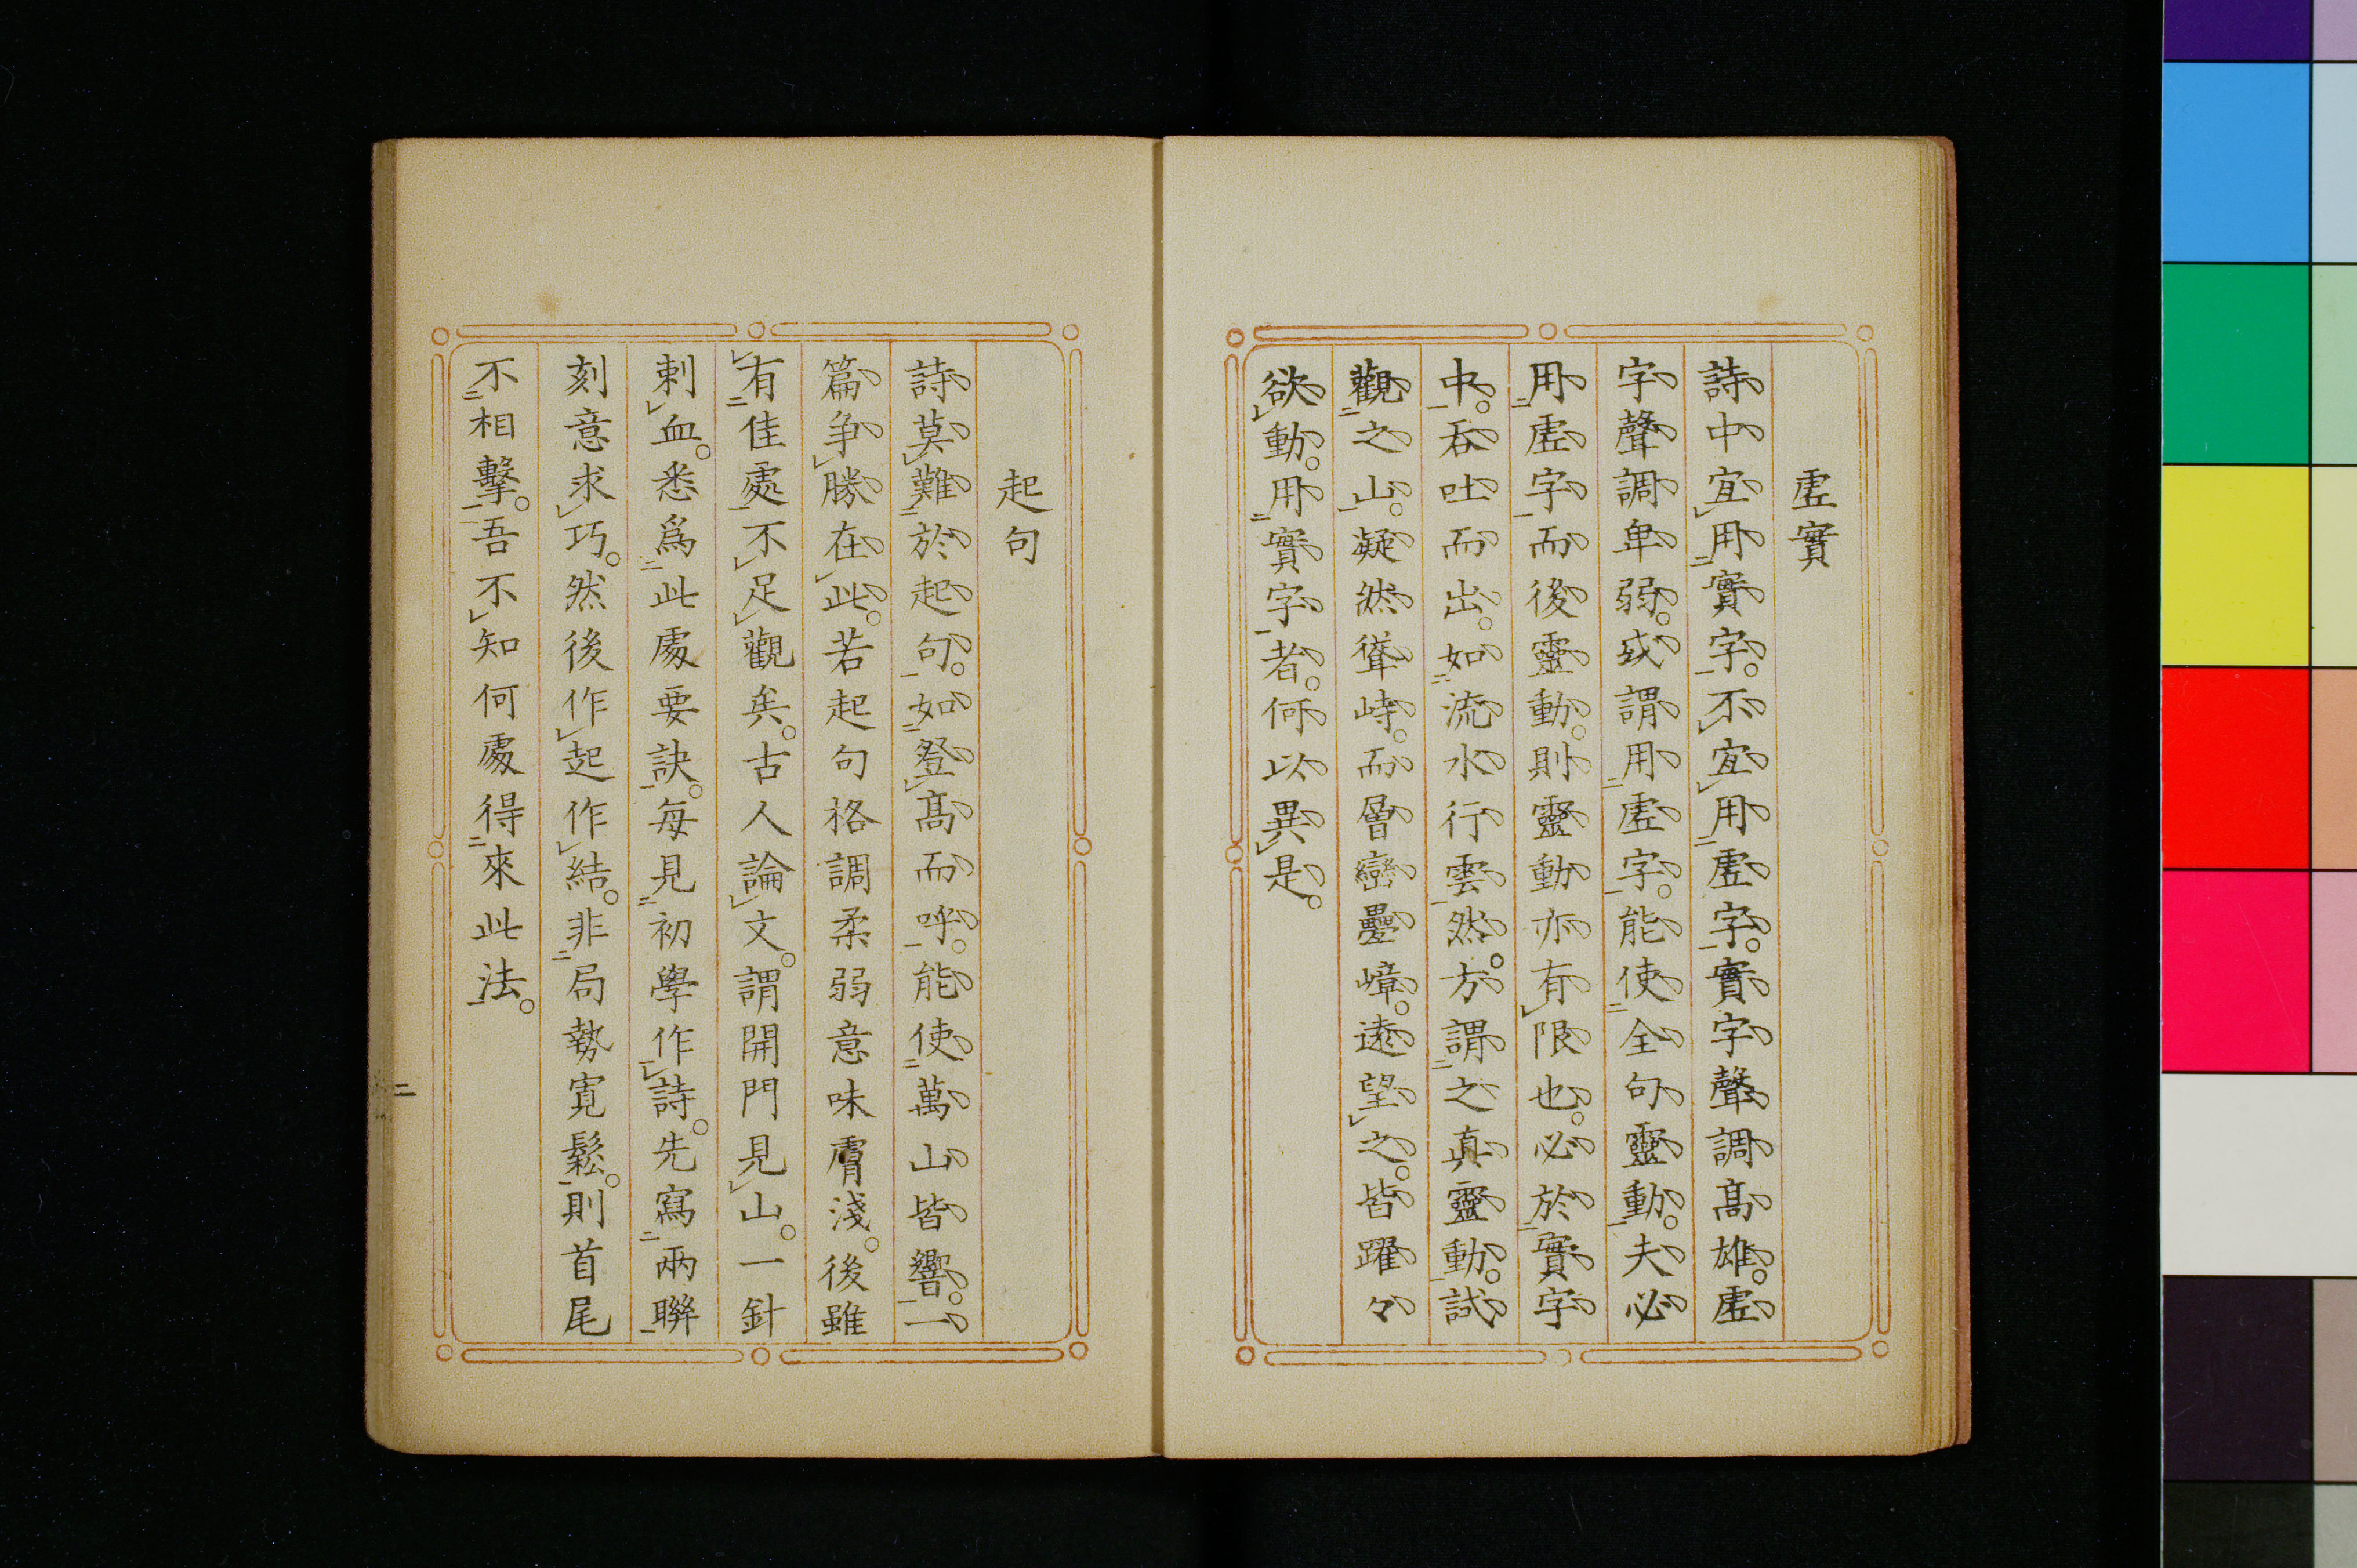 虛實
詩中宜用實字。不宜用虛字。實字聲調高雄。虛
字聲調卑弱。或謂用虛字。能使全句靈動。夫必
用虛字而後靈動。則靈動亦有限也。必於實字
中。吞吐而出。如流水行雲然。方謂之真靈動。試
觀之山。凝然聳峙。而層巒疊嶂。遠望之。皆躍々
欲動。用實字者。何以異是。
起句
詩莫難於起句。如登高而呼。能使萬山皆響。一
篇爭勝在此。若起句格調柔弱意味膚淺。後雖
有佳處不足觀矣。古人論文。謂開門見山。一針
刺血。悉爲此處要訣。每見初學作詩。先寫兩聯
刻意求巧。然後作起作結。非局勢寬鬆。則首尾
不相擊。吾不知何處得來此法。
二